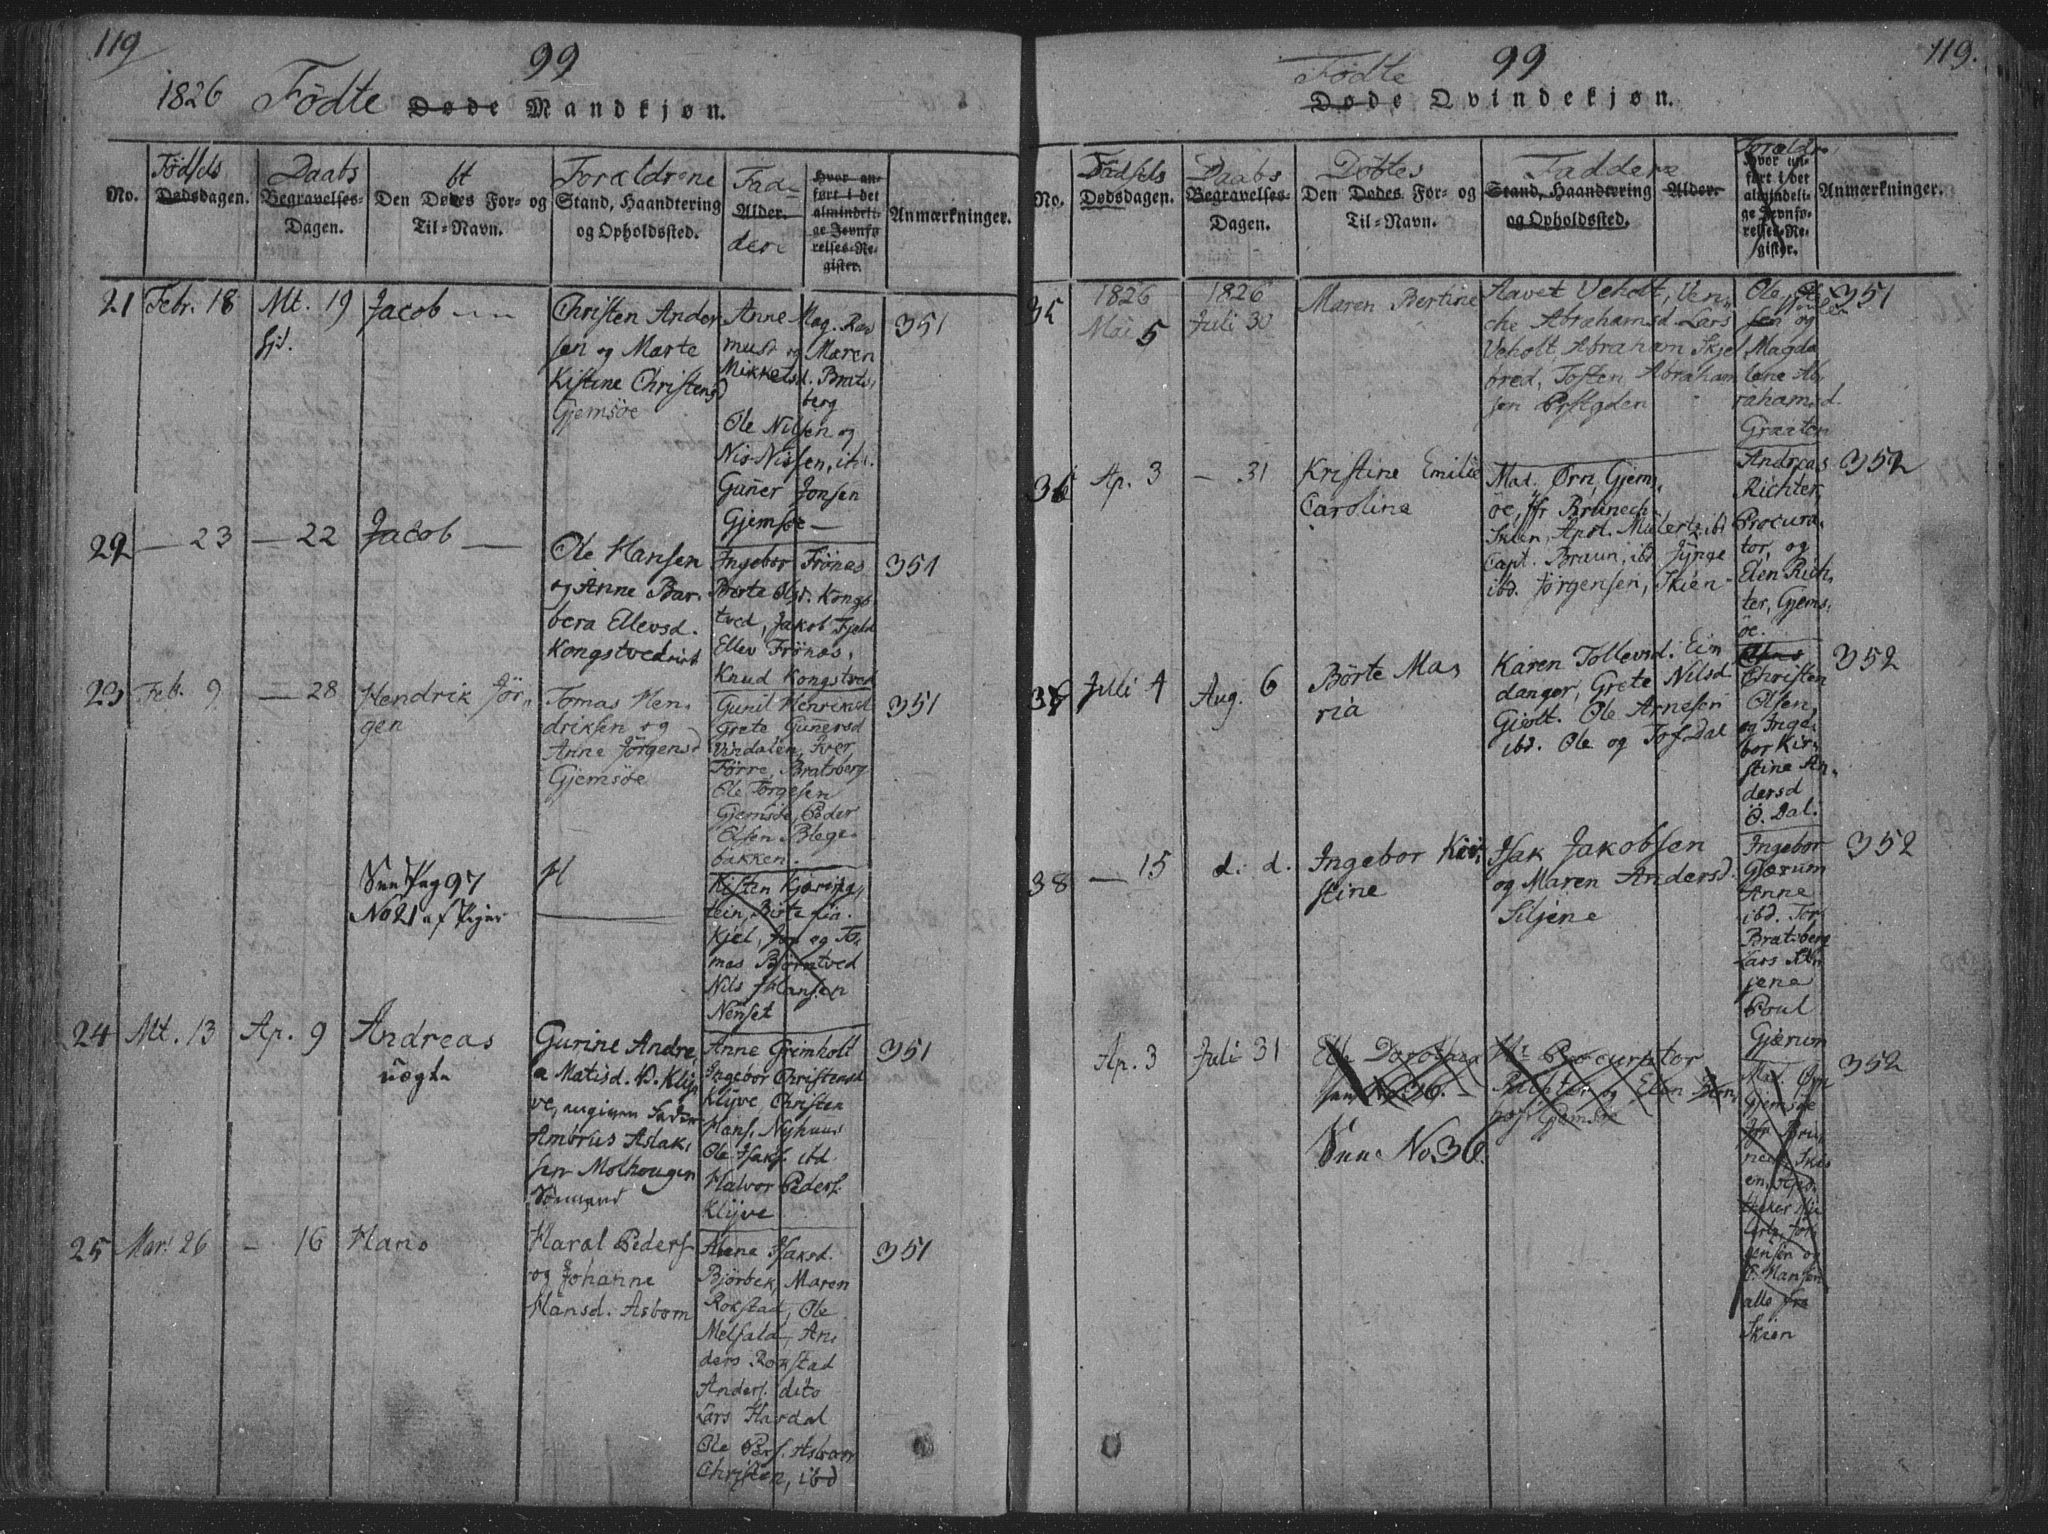 119
99
1826 Födte Døde Mandkjøn.
No.
Födsels
Dødsdagen.
Daabs
Begravelses-
Dagen.
bt
Den Dødes For- og
Til-Navn.
Forældrene
Stand, Haandtering
og Opholdssted.
Fad-
Alder.
dere
Hvor an-
ført i det
almindeli-
ge Jevnfø-
relses-Re-
gister.
Anmærkninger.
21 Febr. 18 Mt. 19 Jacob
Christen Ander
sen og Marte
Kistine Christensd
Gjemsøe
Anne Mag. Ras
musd og Maren
Mikkelsd. Brats,
berg
Ole Nilsen og
Nis Nissen, ibd.
Guner Jonsen
Gjemsøe
351
22 — 23 — 22 Jacob
Ole Hansen
og Anne Bar-
bera Ellevsd.
Kongstved
Ingebor Frönæs
Berte Olsd. Kongs
tved, Jakob Fjeld
Ellev Frönæs,
Knud Kongstved
351
23 Feb. 9 — 28 Hendrik Jör-
gen
Tomas Hen
driksen og
Anne Jörgensd
Gjemsøe
Gunil Henriksd
Grete Gunersd
Vindalen, Iver
Förre, Bratsberg
Ole Torgesen
Gjemsöe, Peder
Olsen Blege-
bakken.
351
No 21 af Piger
Kisten Kjæring
tein, Birte
Kjel, Jon og To-
mas Björntved
Nils Johansen
Nenset
24 Mt. 13 Ap. 9 Andreas
uægte
Gurine Andre,
a Matisd. Klyve
ve, angiven Fader
Ambrus Aslak,
sen Molhougen
Anne Grimholt
Ingebor Christensd
Klyve, Christen
Hans. Nyhuus
Ole Isaks. ibd.
Halvor Peders.
Klyve
351
25 Mart 26 — 16 Hans
Haral Peders.
og Johanne
Hansd. Asbom
Anne Isaksd.
Björbek, Maren
Rokstad, Ole
Melfald, An,
ders Rokstad
Anders. dito
Lars Hasdal
Ole Pers. Asbom
Christen, ibd
351
99
119.
Födte
Døde Qvindekjøn.
No.
Födsels
Dødsdagen.
Daabs
Begravelses-
Dagen.
Döbtes
Den Dødes For- og
Til-Navn.
Faddere
Stand, Haandtering
og Opholdssted.
Alder.
Forældre
Hvor an-
ført i det
almindeli-
ge Jevnfø-
relses-Re-
gister.
Anmærkninger.
35 1826 1826
Mai 5 Juli 30 Maren Bertine
Aavet Veholt, Ven,
che Abrahamsd Lars
Veholt, Abraham Skjel
bred, Tosten Abraham
sen
Ole
sen og
Magda
lene Ab,
rahamsd.
Graaten
351
36 Ap. 3 — 31 Kristine Emilie
Carolina
Mad. Örn, Gjem,
öe, Jfr Brünech
Skien, Apot. Mülertz, ibd
Capt. Braun, ibd
ibd. Jörgensen, Skien
Andreas
Richter,
Procura,
tor, og
Elen Rich,
ter, Gjems,
öe.
352
37 Juli 4 Aug. 6 Börte Ma,
ria
Karen Tollevsd. Ein
danger, Grete Nilsd
Gisolt. Ole Arnesen
ibd. Ole og Tof Dal
Christen
Olsen,
og Inge,
bor Kir,
stine An,
dersd
Ö. Dal.
352
38 — 15 d. d. Ingebor Kir,
stine
Isak Jakobsen
og Maren Andersd.
Siljene
Ingebor
Gjærum
Anne
ibd. Tor
Bratsberg
Lars
jene
Poul
Gjærum
352
Ap. 3 Juli 31 Dorothea
No 36.
Hr Procurator
Richter og Elen
Gjemsöe
No 36.
Mad. Örn
Gjemsöe
Jfr Brü,
nech, Ski,
en, Apo,
theker Mü
lertz, Jör
gensen og
C. Hansen
alle fra
Skien
352